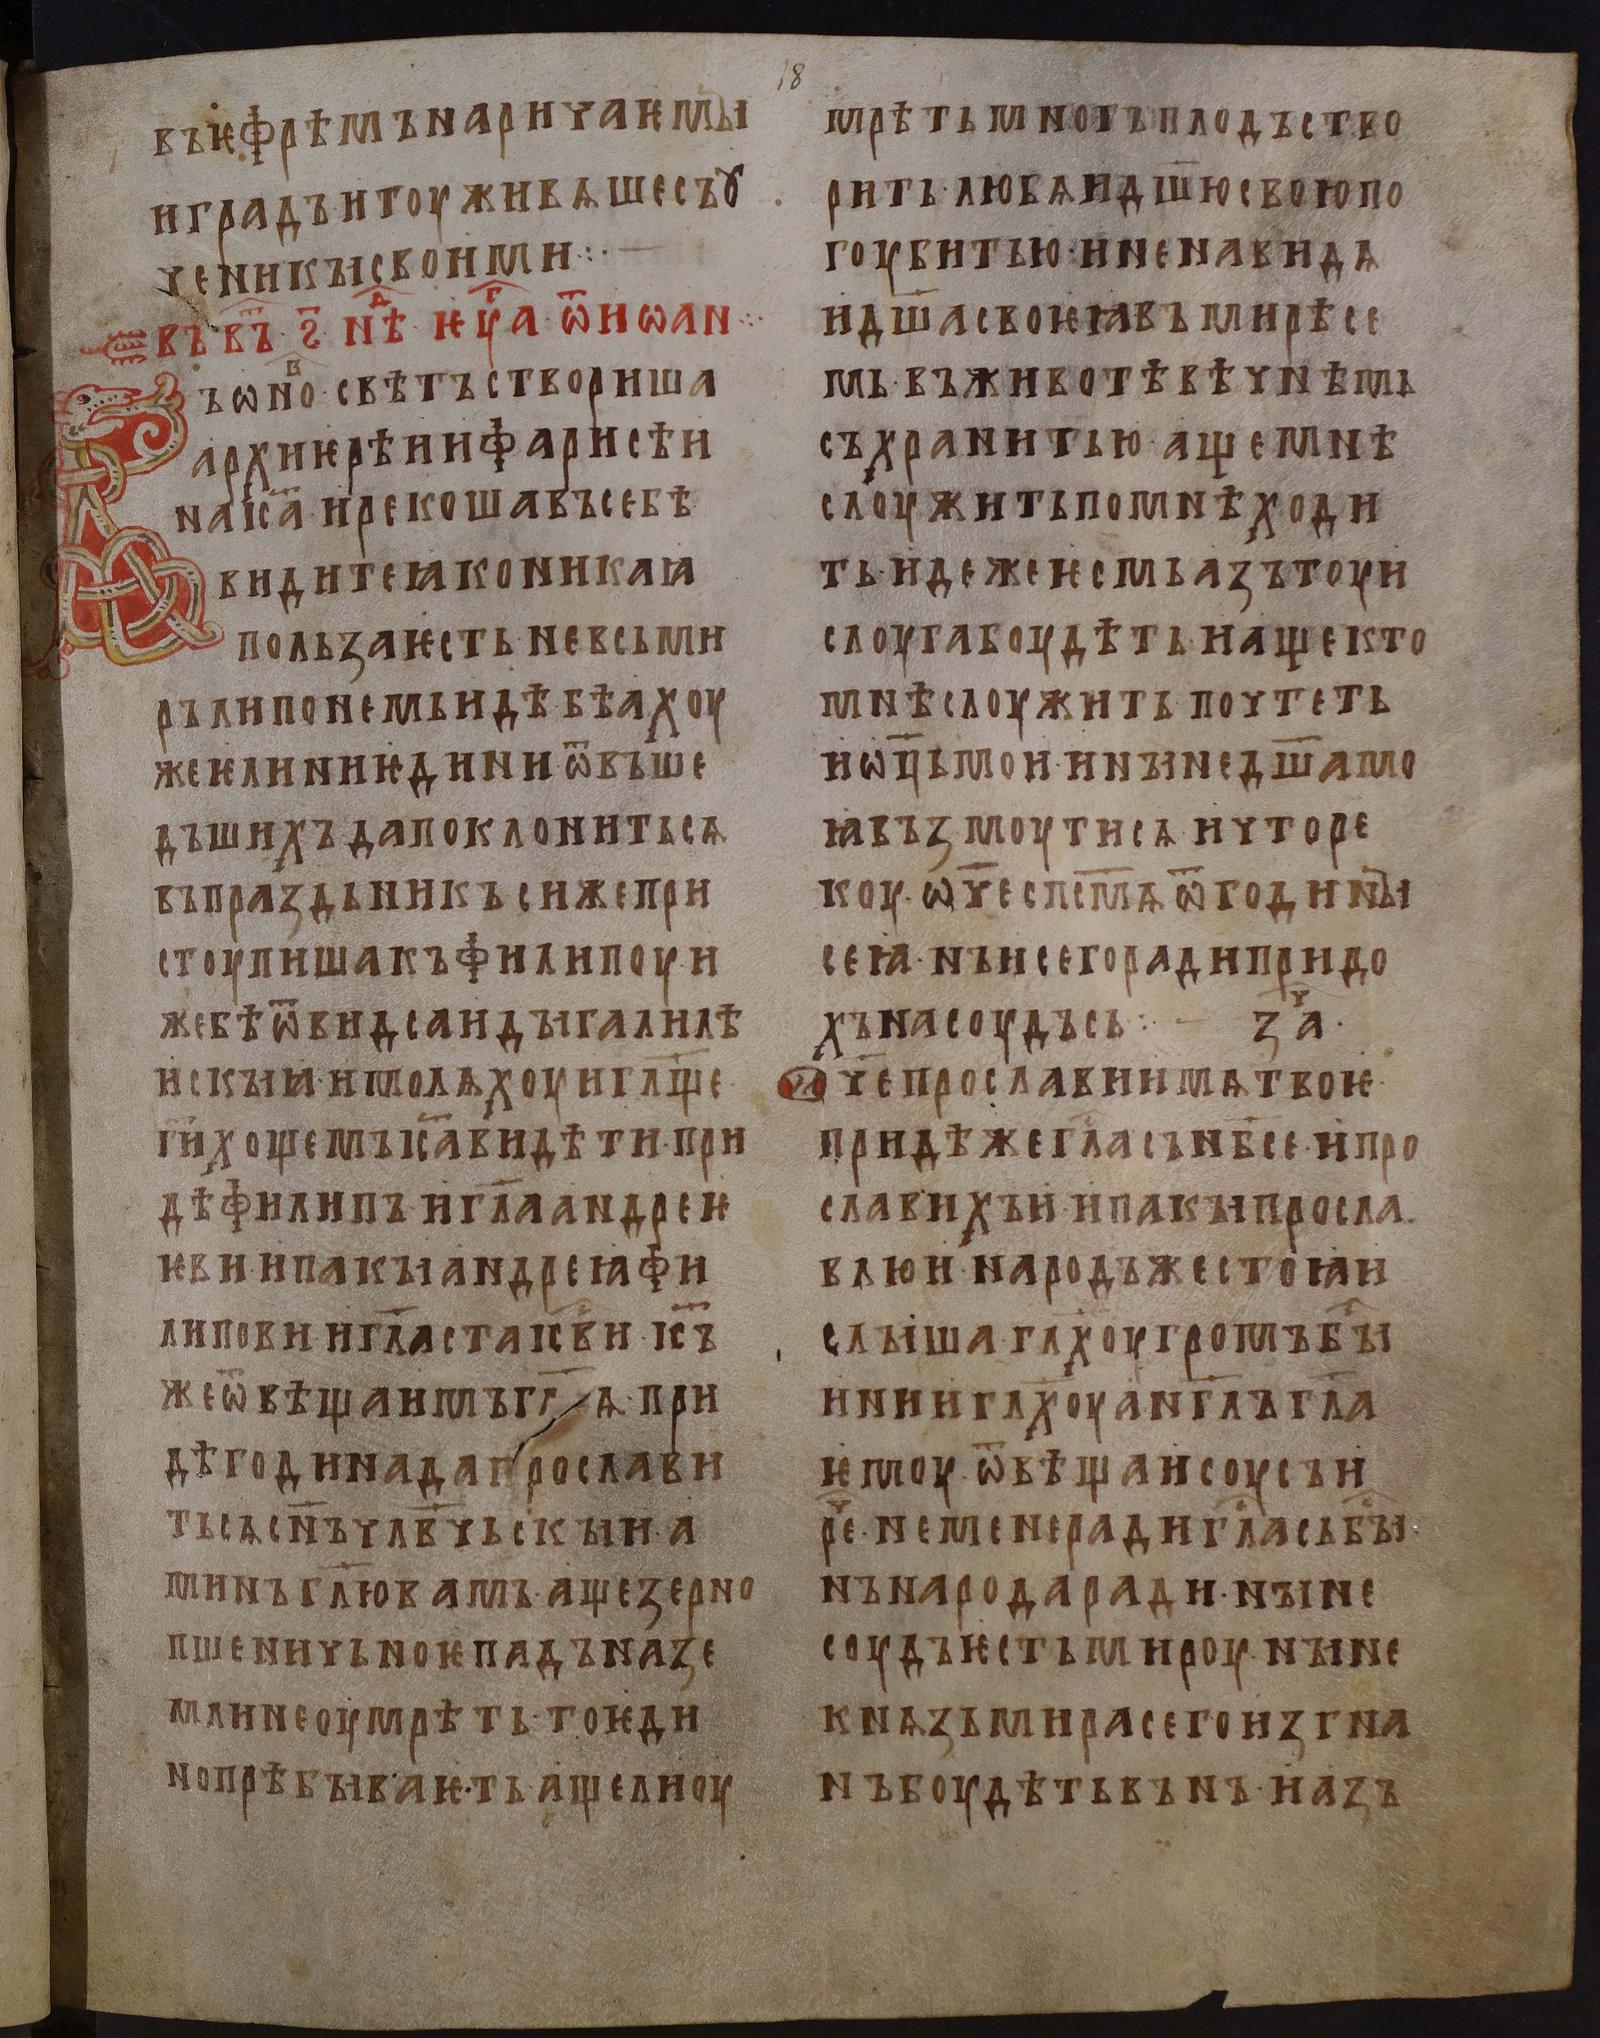 18
въ ѥфрѣмъ наричаѥмꙑ
и градъ и тоу живѧше съ ꙋ
ченикꙑ своими :·
въ вт҃ ѕ҃ нед҃ѣ еуг҃а ѿ иѡан :·
Въ ѡно в҃ свѣтъ створиша
архиѥрѣи и фарисѣи
на іс҃а и рекоша въ себѣ
видите ꙗко никаꙗ
польза ѥсть не всь ми
ръ ли по немь идѣ бѣахоу
же ѥлини ѥдини ѿ въше
дъшихъ да поклонитьсѧ
въ праздьникъ си же при
стоупиша къ филипоу и
же бѣ ѿ видсаидꙑ галилѣ
искыꙗ и молѧхоу и гл҃ще
ги҃ хощемъ іс҃а видѣти· при
дѣ филипъ и гл҃а андреѥ
ѥви и пакꙑ андреꙗ фи
липови и гл҃аста іс҃ви· іс҃ъ
же ѿвѣща имъ гл҃ѧ· при
дѣ година да прослави
тьсѧ сн҃ъ чл҃вчьскꙑи· а
минъ гл҃ю вамъ· аще зерно
пшеничьноѥ падъ на зе
мли не оумрѣть· то ѥди
но прѣбꙑваѥ·ть· аще ли оу
мрѣть многъ плодъ ство
рить· любѧи дш҃ю свою по
гоубить ю· и ненавидѧ
и дш҃а своѥꙗ въ мирѣ се
мь· въ животѣ вѣчнѣмь
съхранить ю· аще мнѣ
слоужить по мнѣ ходи
ть· идеже ѥсмь азъ тоу и
слоуга боудѣть· и аще кто
мнѣ слоужить почтеть
и ѡц҃ь мои· и нꙑне дш҃а мо
ꙗ възмоутисѧ и что ре
коу· ѡч҃е сп҃см мѧ ѿ годинꙑ
сеꙗ· нъ и сего ради придо
хъ на соудъ сь :· зач҃а·
Ѡч҃е прослави имѧ твоѥ·
придѣ же гла҃съ нб҃се· и про
славихъ и· и пакꙑ просла
влю и· народъ же стоꙗи
слꙑша гл҃хоу громъ бꙑ҃
ини и гл҃хоу анг҃лъ гл҃а
ѥмоу· ѿвѣща исоусъ и
реч҃е· не мене ради гл҃ась бꙑ҃·
нъ народа ради· нꙑне
соудъ ѥсть мироу· нꙑне
кнѧзъ мира сего изгна
нъ боудѣть вънъ· и азъ